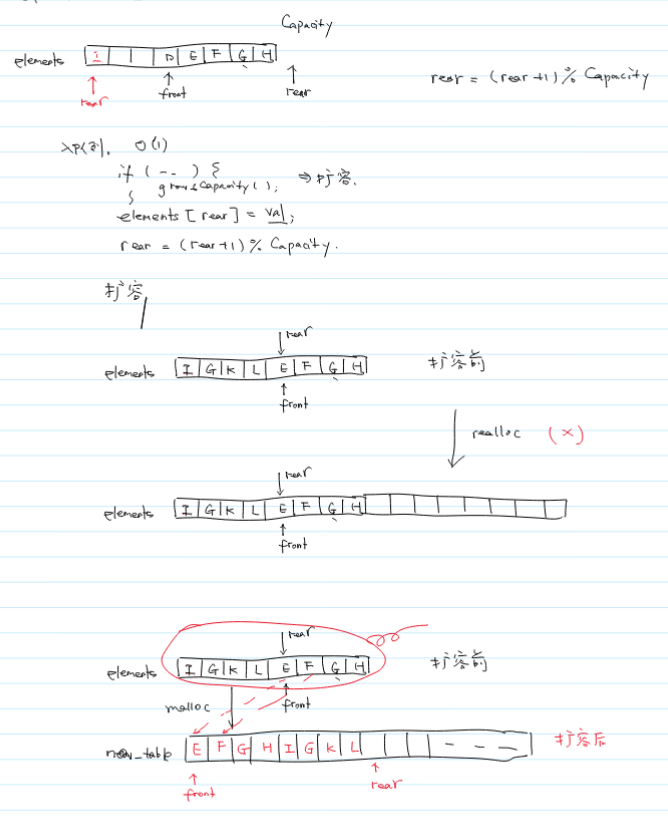 Capacity
elements I D E F G H
rear front rear
rear = (rear+1) % Capacity
入队列. O(1)
if (-- ) {
growCapacity(); ⇒ 扩容.
}
elements[rear] = val;
rear = (rear+1) % Capacity.
扩容
rear
elements I G K L E F G H 扩容前
front
realloc (×)
rear
elements I G K L E F G H
front
rear
elements I G K L E F G H 扩容前
malloc front
new_table E F G H I G K L - - - 扩容后
front rear